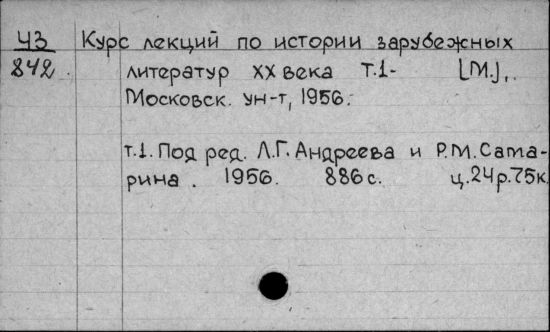 ЧЗ Курс лекций по истории зарубежных
842. литератур XX века т.1- [М.],
Московск. ун-т, 1956.
т.1. Под ред. Л.Г. Андреева и Р.М. Сама-
рина. 1956. 886 с. ц. 24 р. 75 к.